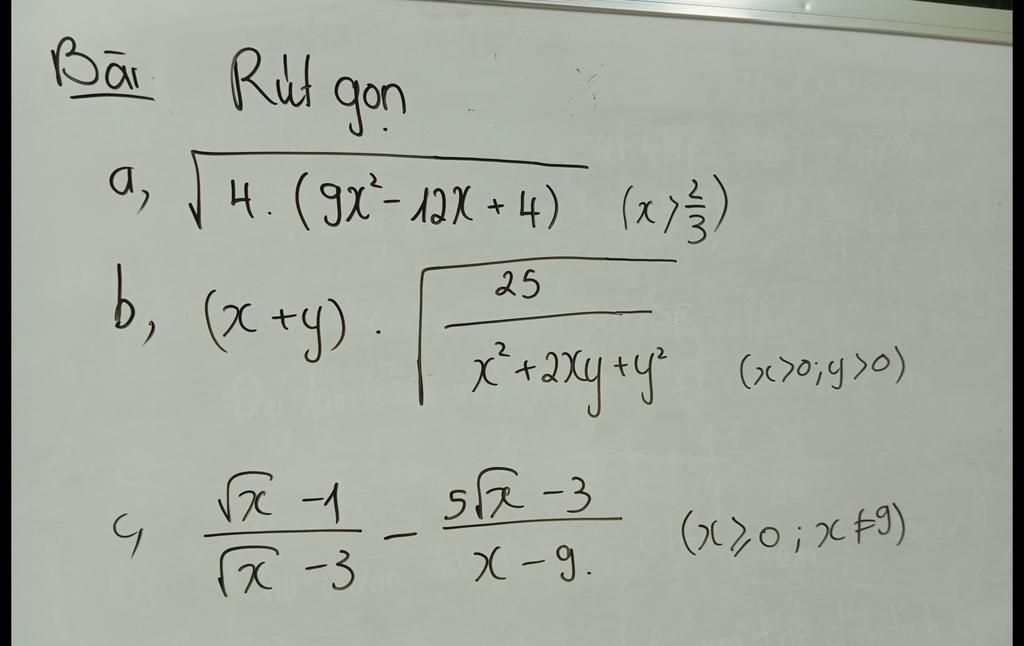 Bài Rút gọn
a, √4.(9x²-12x+4) (x>2/3)
b, (x+y).√25/(x²+2xy+y²) (x>0;y>0)
c, (√x-1)/(√x-3) - (5√x-3)/(x-9). (x≥0;x≠9)